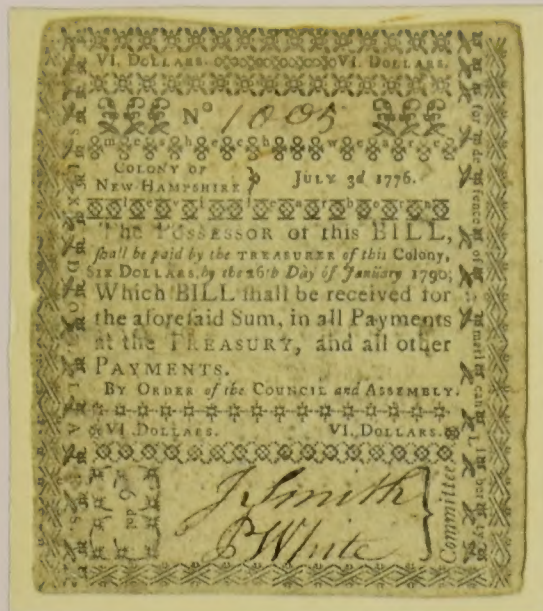 VI. DOLLARS. VI. DOLLARS.
No 1005
meshech weare
COLONY OF
NEW-HAMPSHIRE } JULY 3d 1776.
levi dearborn
The POSSESSOR of this BILL,
ſhall be paid by the TREASURER of this Colony,
SIX DOLLARS, by the 26th Day of January 1790;
Which BILL ſhall be received for
the aforeſaid Sum, in all Payments
at the TREASURY, and all other
PAYMENTS.
BY ORDER of the COUNCIL and ASSEMBLY.
VI. DOLLARS. VI. DOLLARS.
6 dol
J Smith
P White
} Committee
for defence of american liberty
SIX DOLLARS